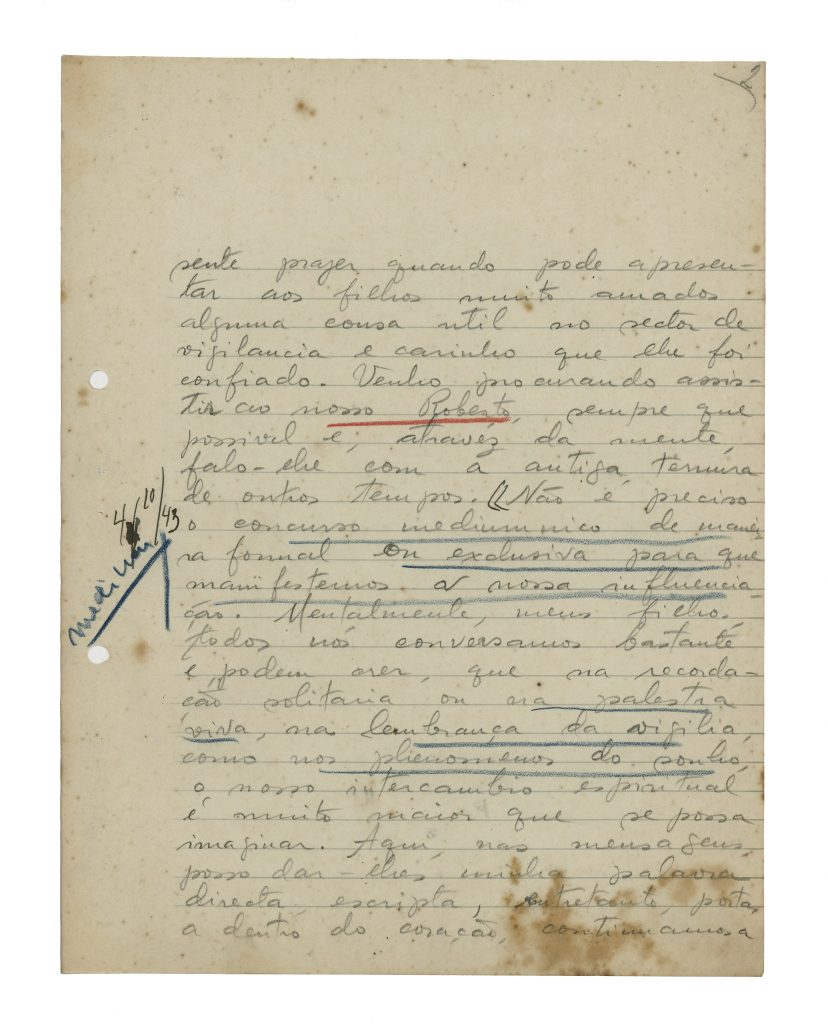 2
sente prazer quando pode apresen-
tar aos filhos muito amados
alguma cousa util no sector de
vigilancia e carinho que lhe foi
confiado. Venho procurando assis-
tir ao nosso Roberto, sempre que
possivel e, atravez da mente,
falo-lhe com a antiga ternura
de outros tempos. (Não é preciso
4/10/43
o concurso mediumnico de manei-
ra formal ou exclusiva para que
manifestemos a nossa influencia-
ção. Mentalmente, meus filhos,
todos nós conversamos bastante
e, podem crer, que na recorda-
ção solitaria ou na palestra
viva, na lembrança da vigilia,
como nos phenomenos do sonho,
o nosso intercambio espiritual
é muito maior que se possa
imaginar. Aqui, nas mensagens,
posso dar-lhes minha palavra
directa, escripta, entretanto, porta
a dentro do coração, continuamos a